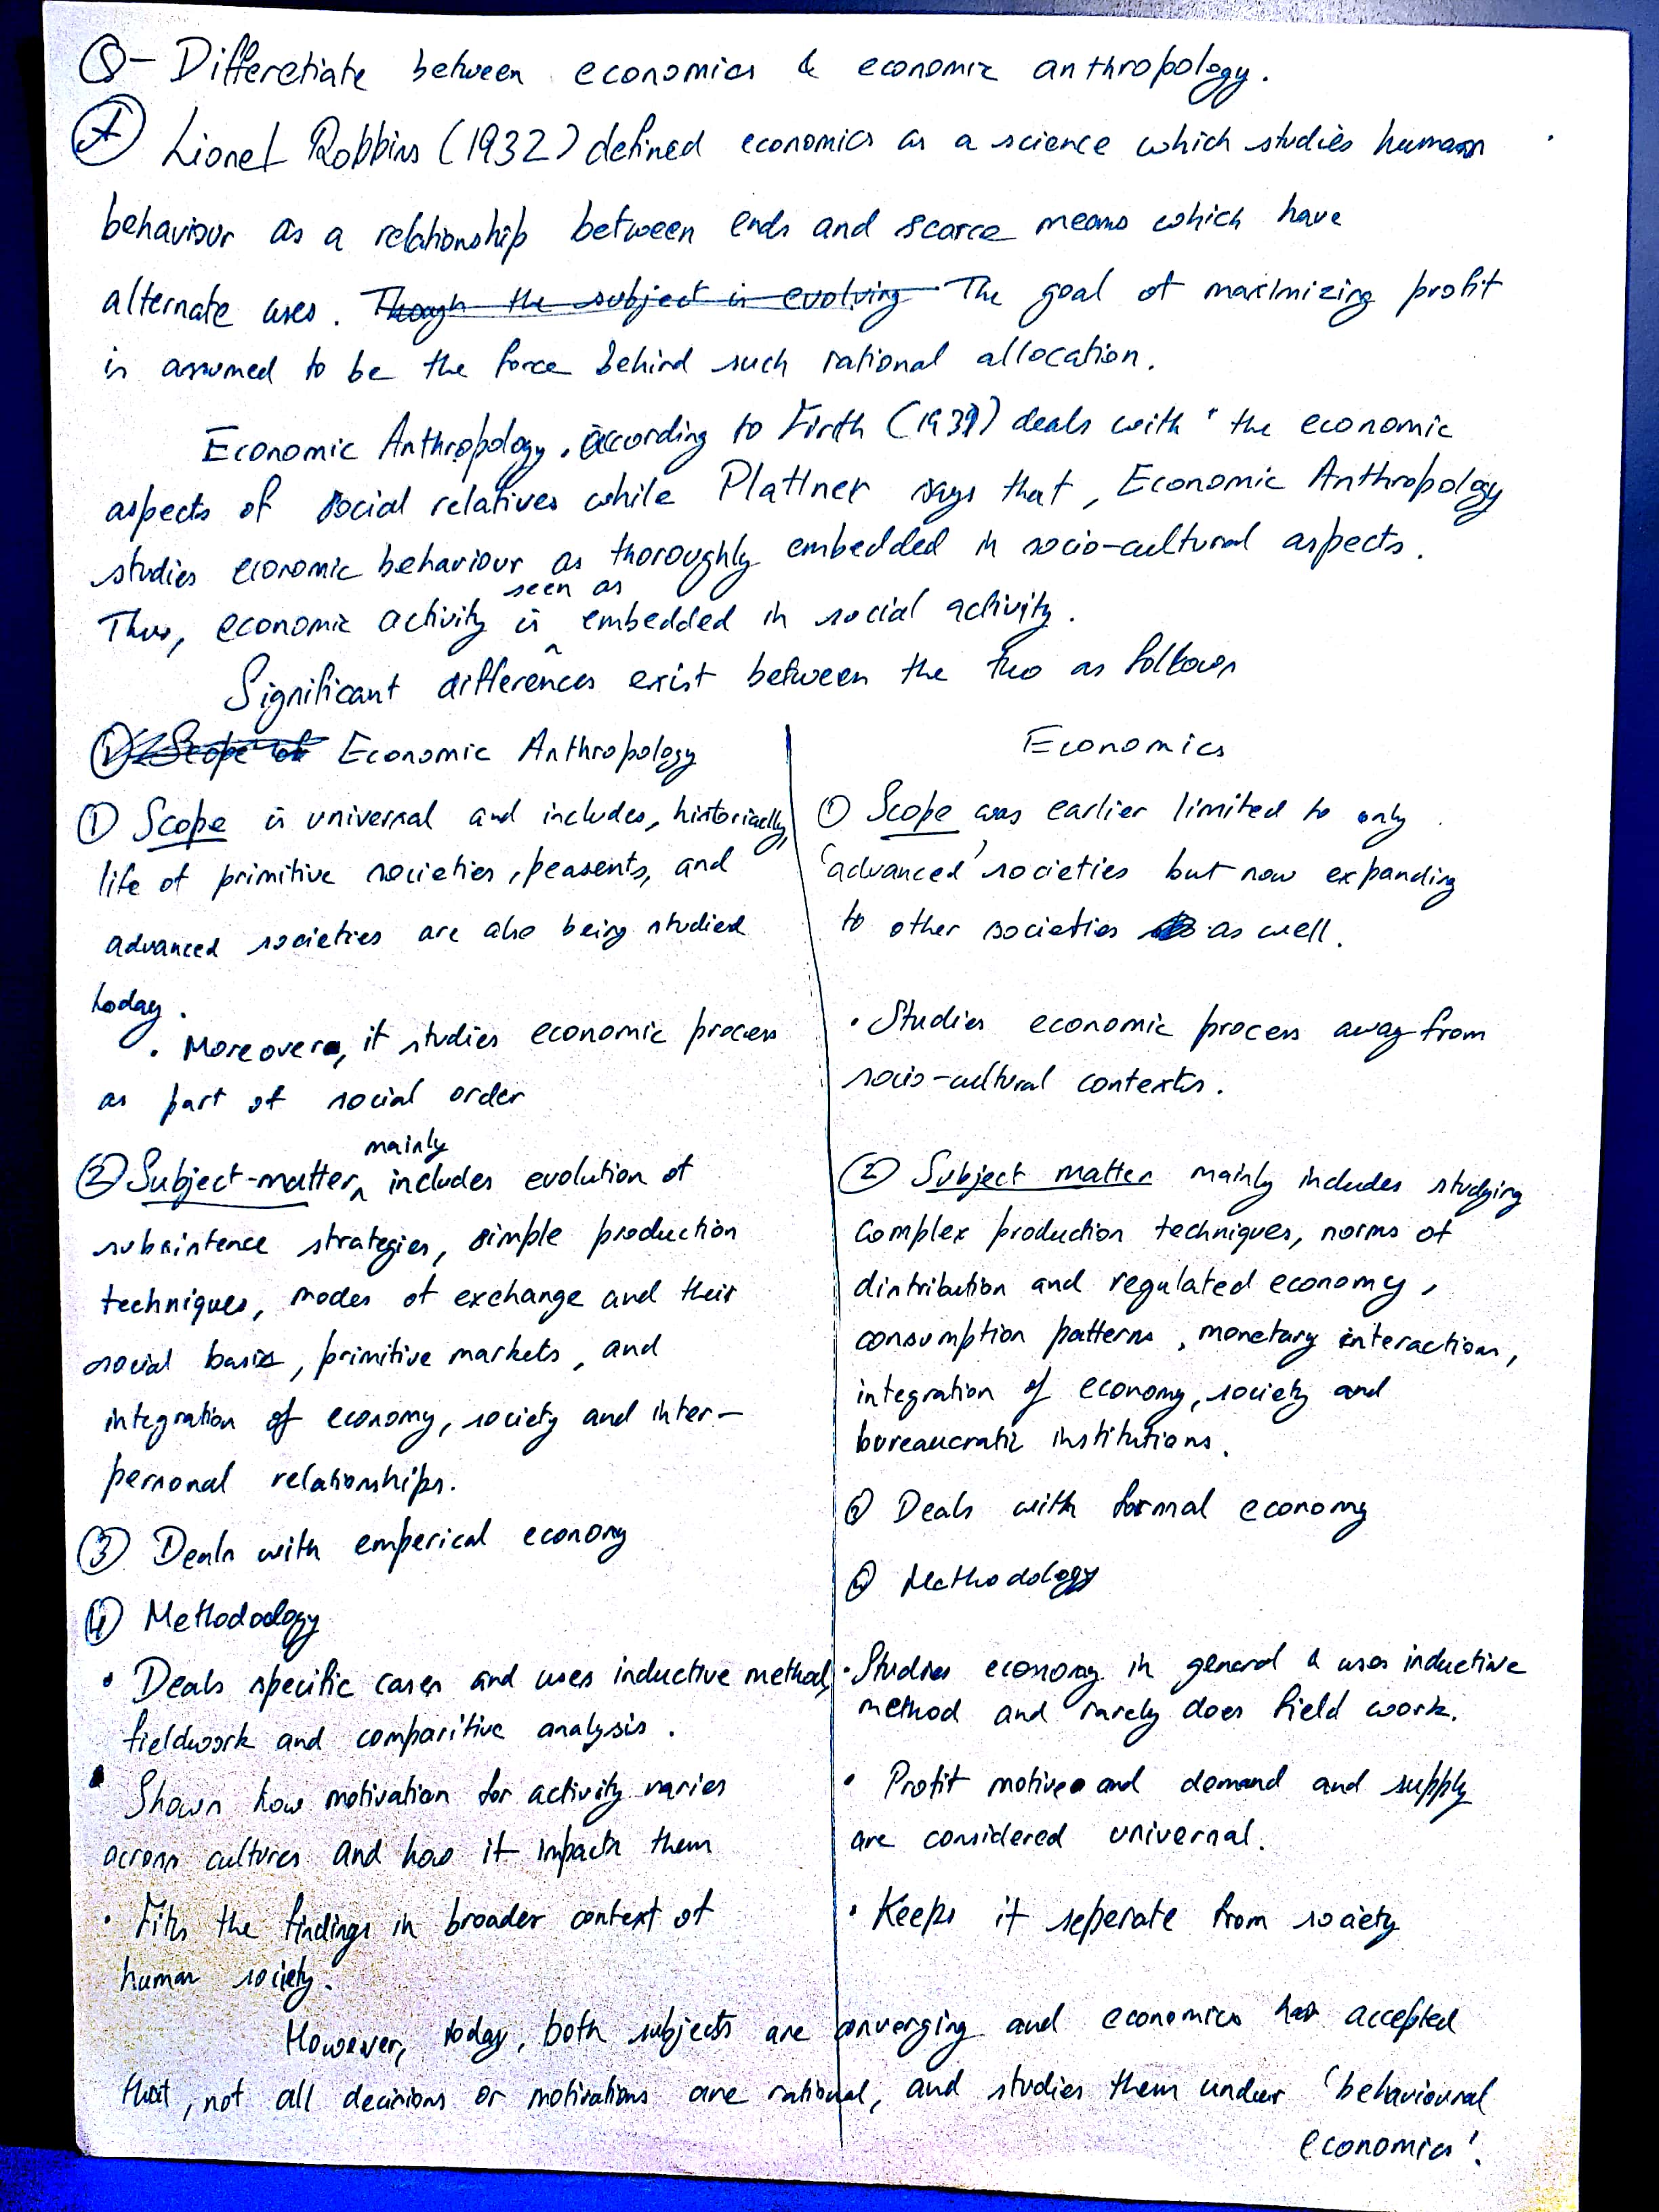 Q- Differetiate between economics & economic anthropology.
A Lionel Robbins (1932) defined economics as a science which studies human
behaviour as a relationship between ends and scarce means which have
alternate uses. Though the subject is evolving The goal of maximizing profit
is assumed to be the force behind such rational allocation.
Economic Anthropology, according to Firth (1939) deals with "the economic
aspects of social relatives while Plattner says that, Economic Anthropology
studies economic behaviour as thoroughly embedded in socio-cultural aspects.
seen as
Thus, economic activity is ^ embedded in social activity.
Significant differences exist between the two as follows
① Scope of Economic Anthropology
① Scope is universal and includes, historically,
life of primitive societies, peasents, and
advanced societies are also being studied
today.
• Moreover, it studies economic process
as part of social order
mainly
② Subject-matter ^ includes evolution of
subsistence strategies, simple production
techniques, modes of exchange and their
social basis, primitive markets, and
integration of economy, society and inter-
personal relationships.
③ Deals with emperical economy
④ Methodology
• Deals specific cases and uses inductive method,
fieldwork and comparitive analysis.
• Shows how motivation for activity varies
across cultures and how it impacts them
• Fits the findings in broader context of
human society.
Economics
① Scope was earlier limited to only
'advanced' societies but now expanding
to other societies as well.
• Studies economic process away from
socio-cultural contexts.
② Subject matter mainly includes studying
complex production techniques, norms of
distribution and regulated economy,
consumption patterns, monetary interactions,
integration of economy, society and
bureaucratic institutions.
③ Deals with formal economy
④ Methodology
• Studies economy in general & uses inductive
method and rarely does field work.
• Profit motive and demand and supply
are considered universal.
• Keeps it seperate from society
However, today, both subjects are converging and economics has accepted
that, not all decisions or motivations are rational, and studies them under 'behavioural
economics'.